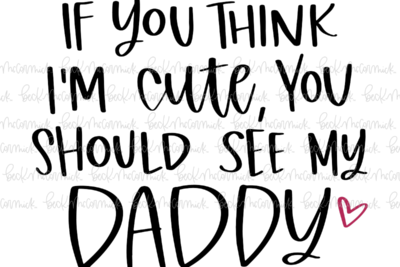 IF YOU THINK
I'M cute, YOU
SHOULD SEE MY
DADDY